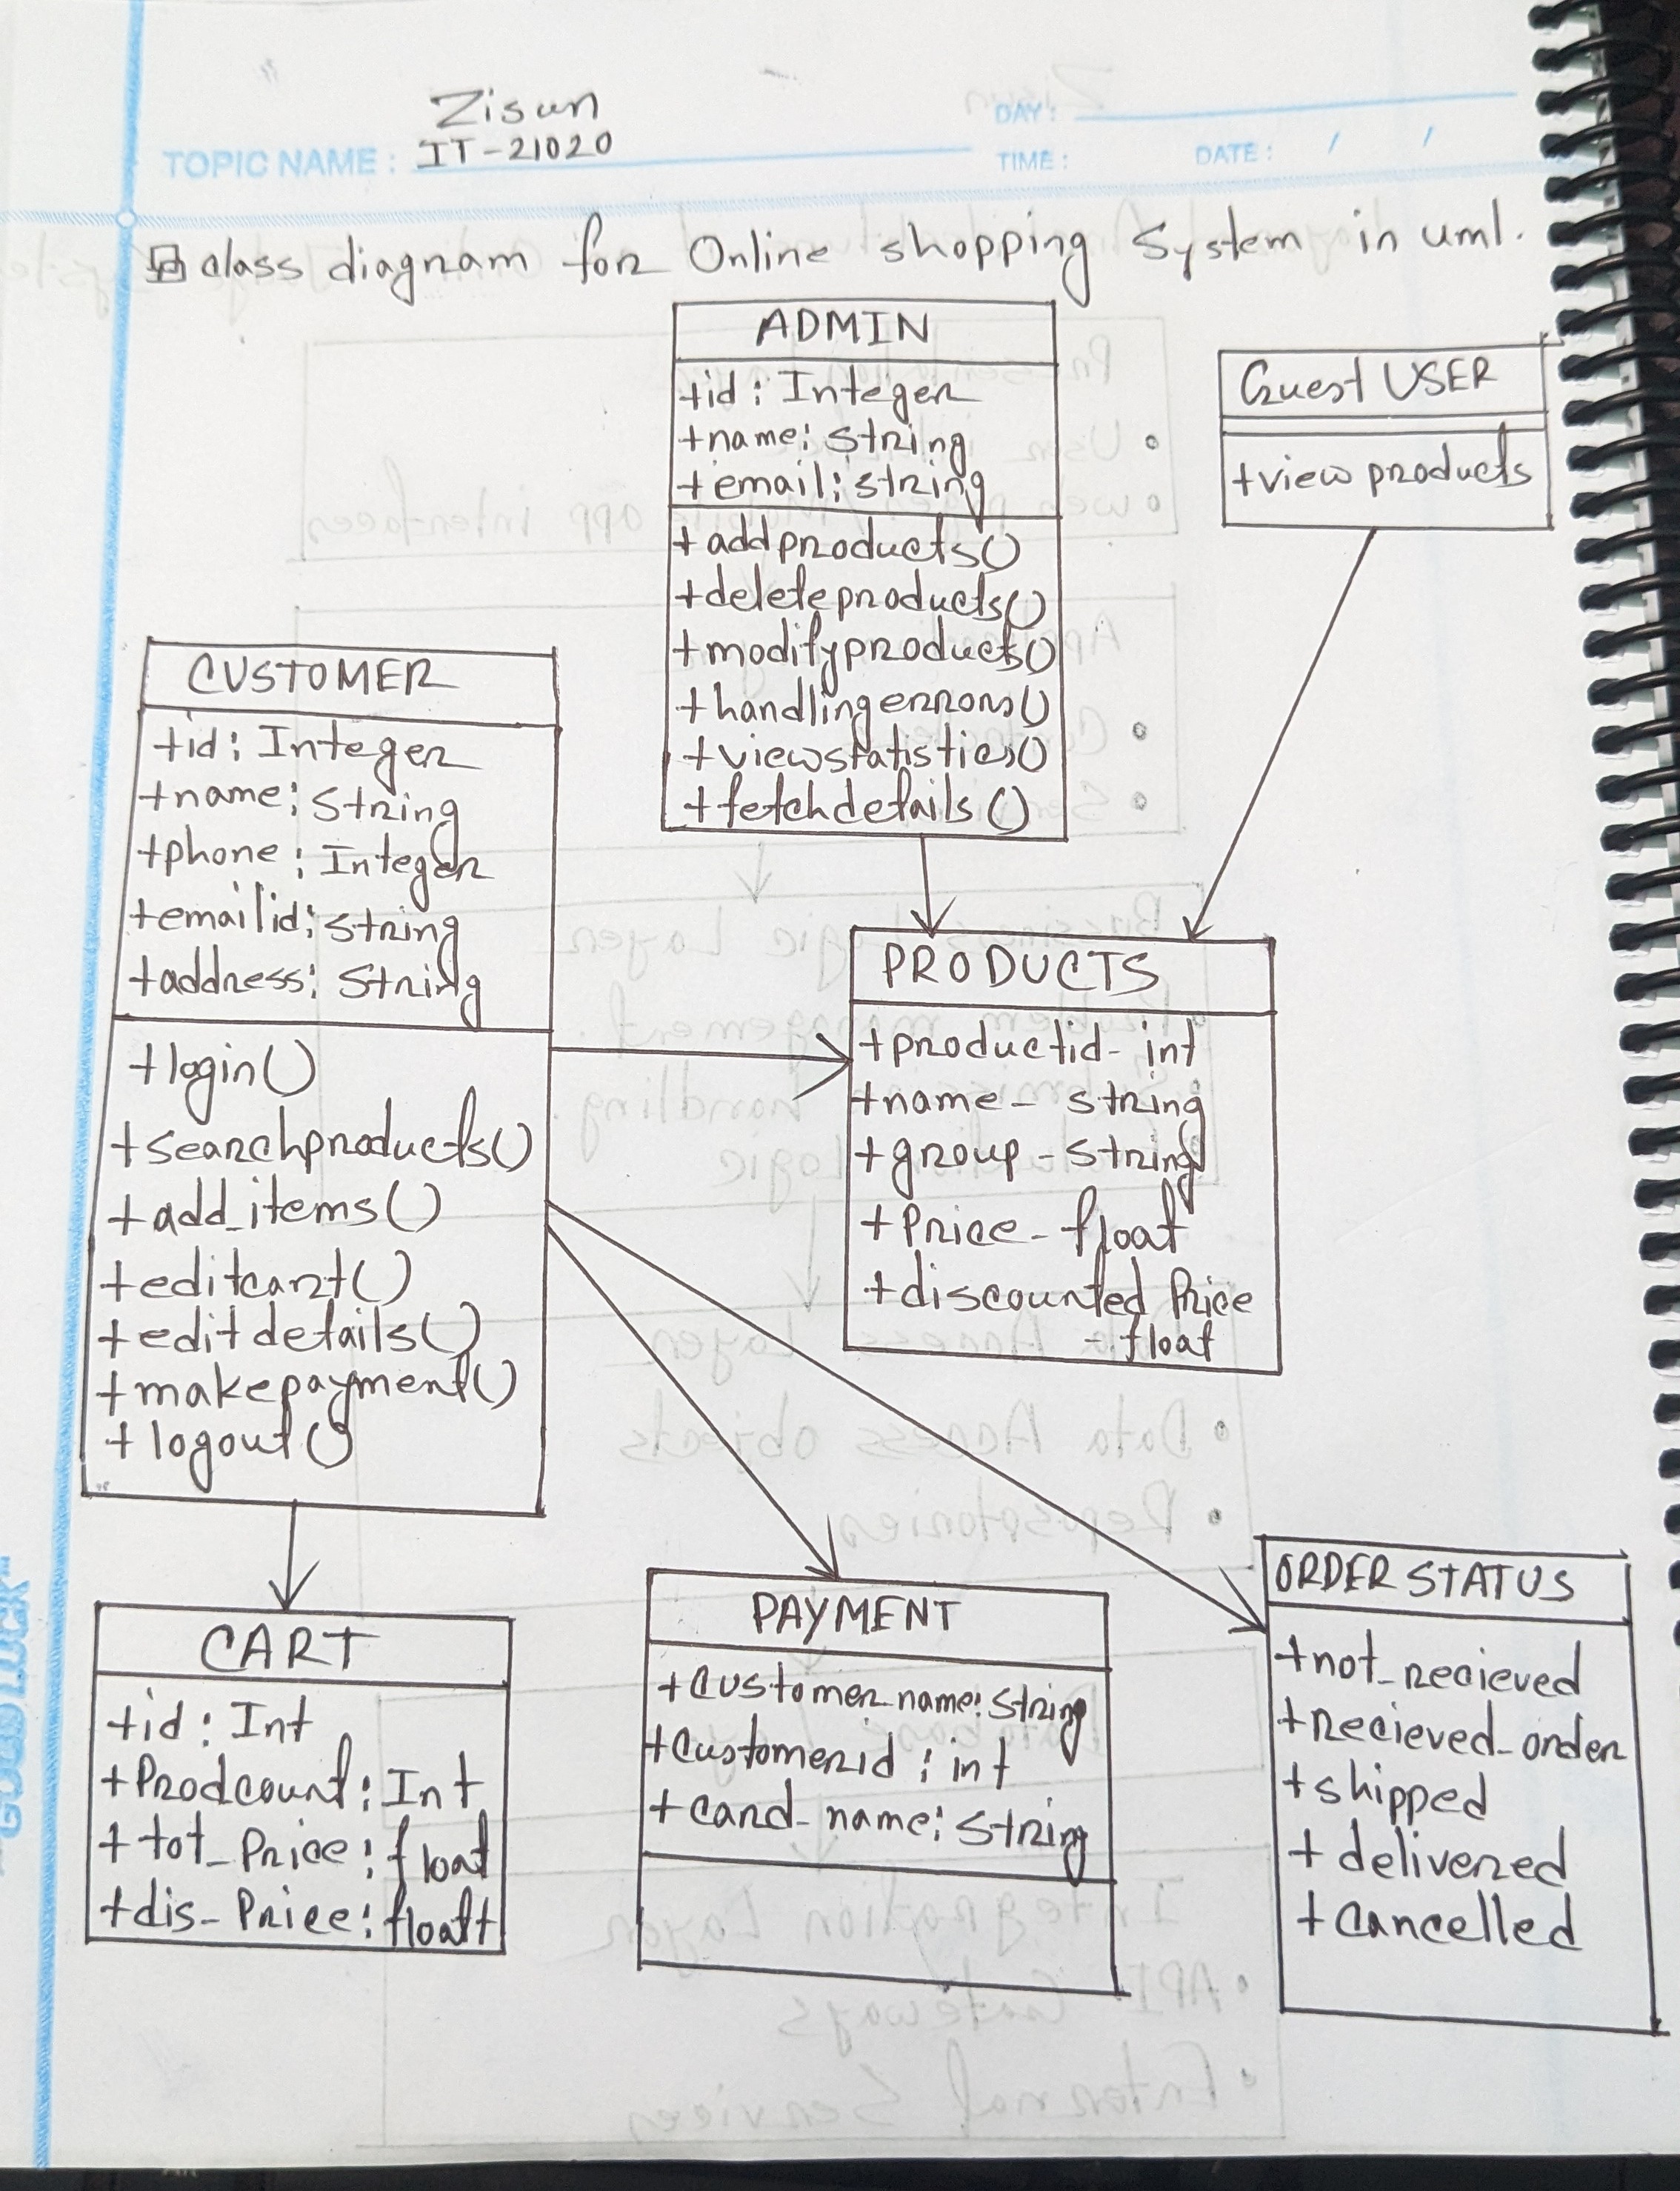 Zisan
TOPIC NAME : IT-21020
DAY :
TIME :
DATE : / /
class diagram for Online shopping System in uml.
ADMIN
+id: Integer
+name: String
+email: string
+addproducts()
+deleteproducts()
+modifyproducts()
+handlingerrors()
+viewstatistics()
+fetchdetails()
Guest USER
+view products
CUSTOMER
+id: Integer
+name: String
+phone: Integer
+emailid: string
+address: String
+login()
+searchproducts()
+add_items()
+editcart()
+editdetails()
+makepayment()
+logout()
PRODUCTS
+productid- int
+name- string
+group-string
+Price-float
+discounted Price
- float
CART
+id: Int
+Prodcount: Int
+tot_Price: float
+dis-Price: floatt
PAYMENT
+Customer name: String
+Customerid: int
+card-name: String
ORDER STATUS
+not_recieved
+recieved-order
+shipped
+delivered
+Cancelled